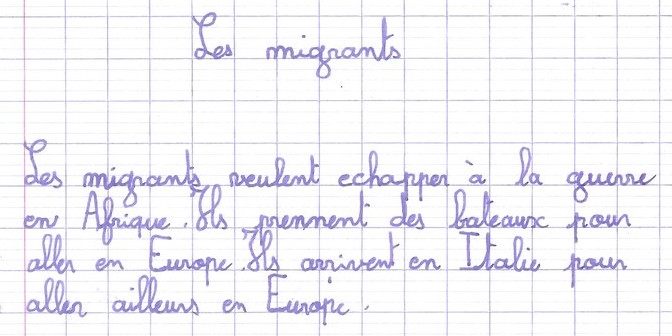 Les migrants
Les migrants veulent echapper à la guerre
en Afrique. Ils prennent des bateaux pour
aller en Europe. Ils arrivent en Italie pour
aller ailleurs en Europe.